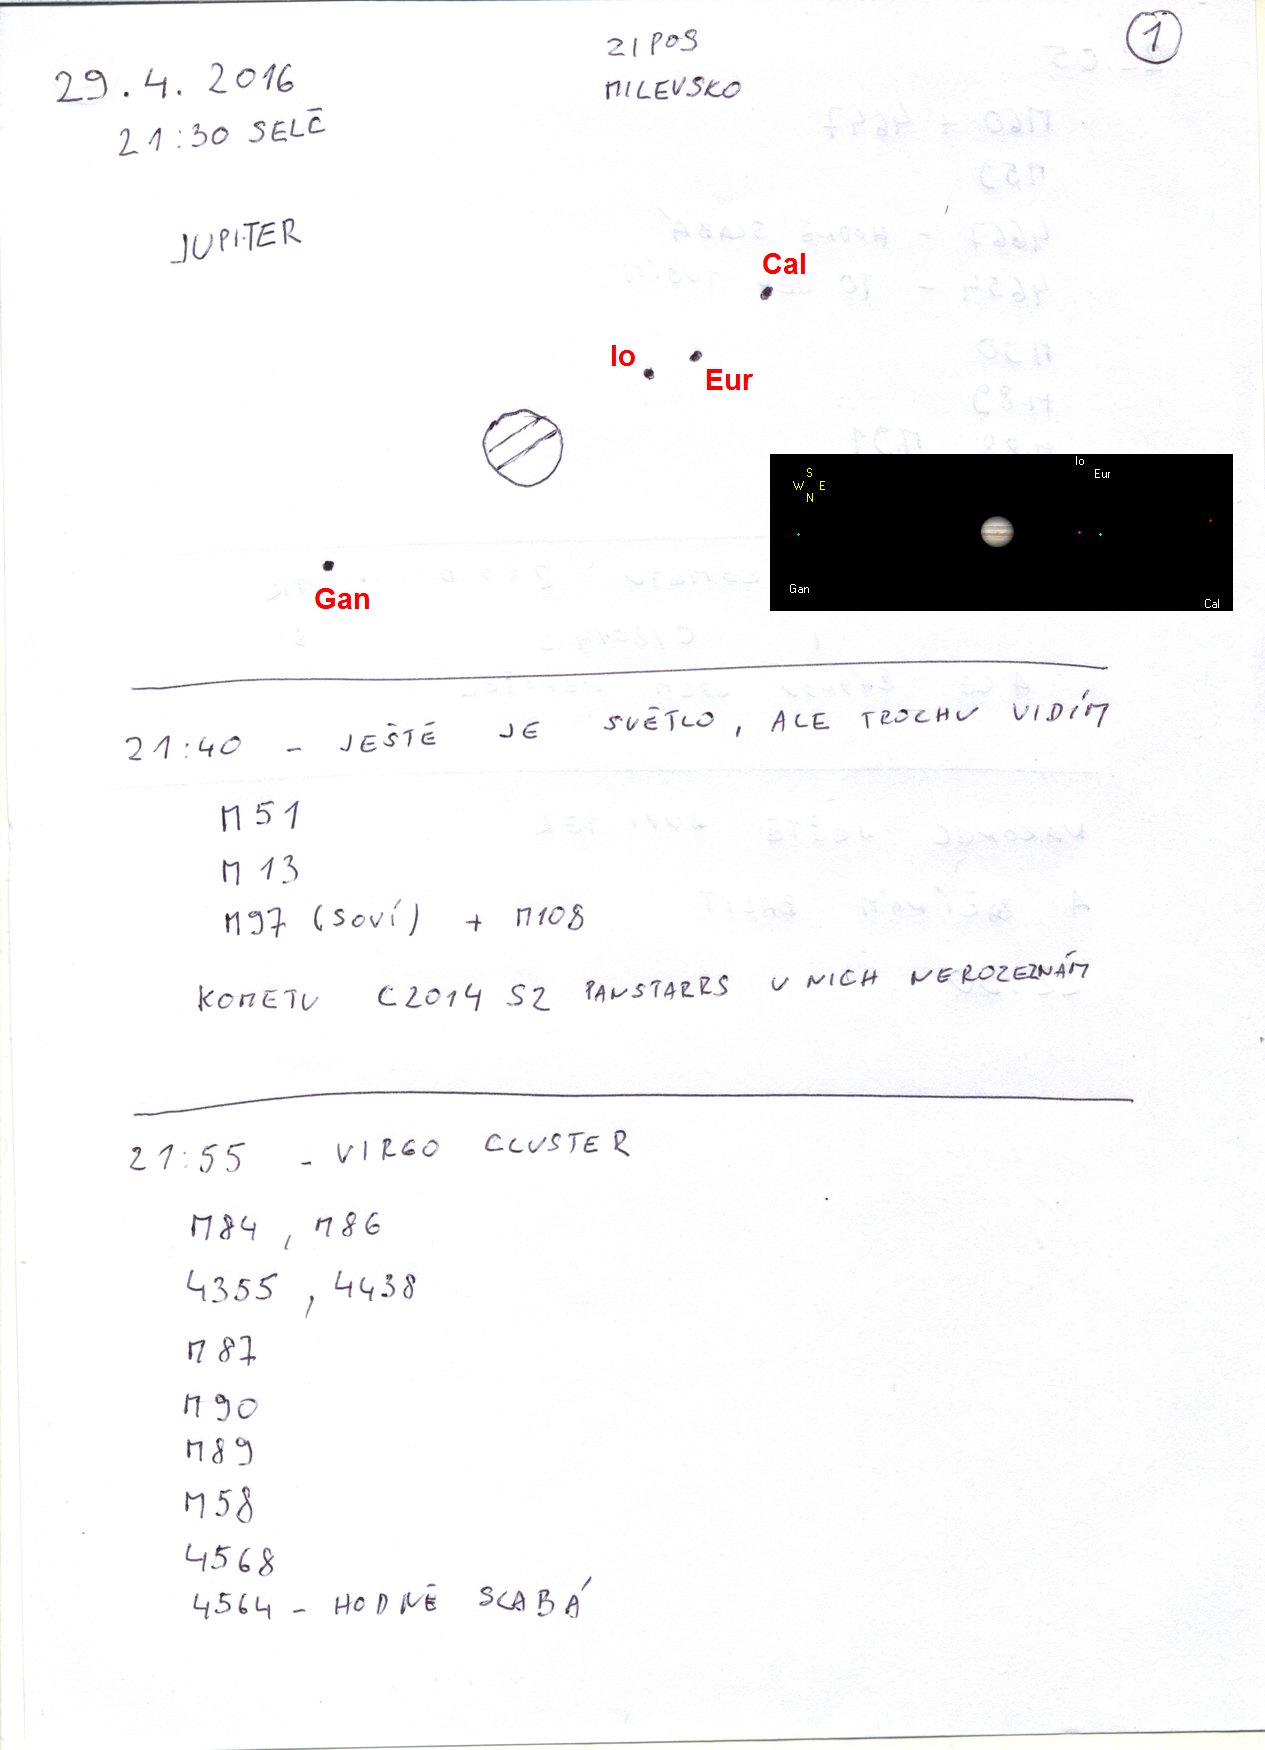 1
ZIPOS
MILEVSKO
29.4. 2016
21:30 SELČ
JUPITER
Cal
Io
Eur
Gan
Io
Eur
S
W E
N
Gan
Cal
21:40 - JEŠTĚ JE SVĚTLO, ALE TROCHU VIDÍM
M51
M 13
M97 (SOVÍ) + M108
KOMETU C2014 S2 PANSTARRS V NICH NEROZEZNÁM
21:55 - VIRGO CLUSTER
M84, M86
4355, 4438
M 87
M 90
M89
M58
4568
4564 - HODNĚ SLABÁ